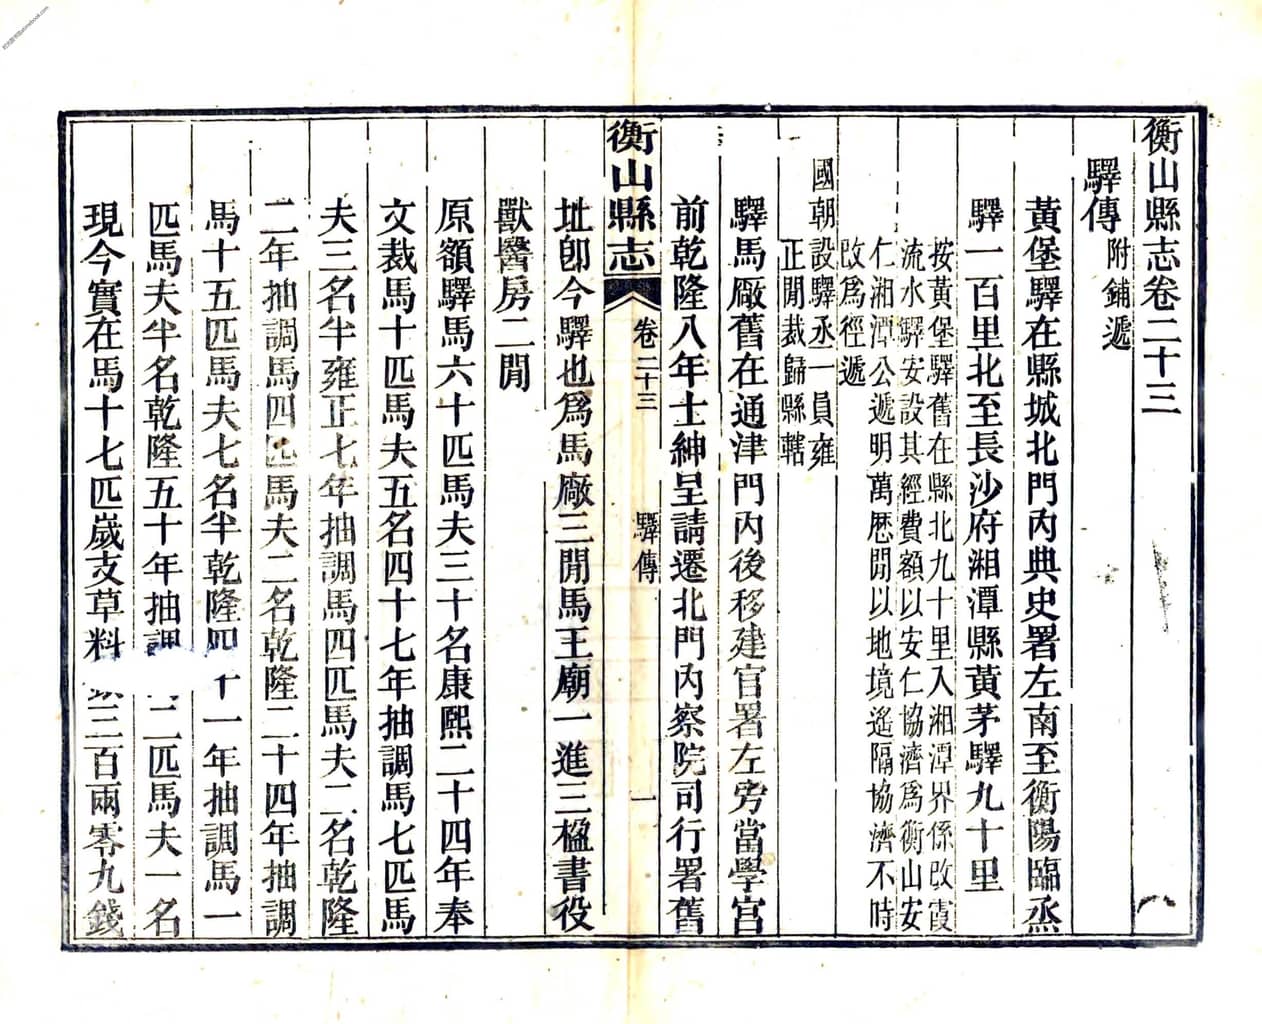 衡山縣志卷二十三
驛傳附鋪遞
黃堡驛在縣城北門內典史署左南至衡陽臨烝
驛一百里北至長沙府湘潭縣黃茅驛九十里
按黃堡驛舊在縣北九十里入湘潭界係改霞
流水驛安設其經費額以安仁協濟為衡山安
仁湘潭公遞明萬厯間以地境遙隔協濟不時
改為徑遞
國朝設驛丞一員雍
正間裁歸縣轄
驛馬廠舊在通津門內後移建官署左旁當學宮
前乾隆八年士紳呈請遷北門內察院司行署舊
衡山縣志
卷二十三
驛傳
一
址卽今驛也為馬廠三間馬王廟一進三楹書役
獸醫房二間
原額驛馬六十匹馬夫三十名康熙二十四年奉
文裁馬十匹馬夫五名四十七年抽調馬七匹馬
夫三名半雍正七年抽調馬四匹馬夫二名乾隆
二年抽調馬四匹馬夫二名乾隆二十四年抽調
馬十五匹馬夫七名半乾隆四十一年抽調馬一
匹馬夫半名乾隆五十年抽調二匹馬夫一名
現今實在馬十七匹歲支草料三百兩零九錢